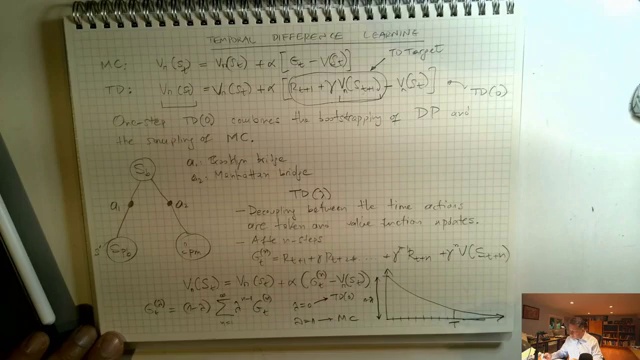 TEMPORAL DIFFERENCE LEARNING
MC: Vπ(St) = Vπ(St) + α [Gt − V(St)]
TD Target
TD: Vπ(St) = Vπ(St) + α [Rt+1 + γ Vπ(St+1) − Vπ(St)]
TD(0)
One-step TD(0) combines the bootstrapping of DP and
the sampling of MC.
a1: Brooklyn bridge
a2: Manhattan bridge
a1
a2
s'
TD(λ)
- Decoupling between the time actions
are taken and value function updates.
- After n-steps
Gt(n) = Rt+1 + γRt+2 ... + γ Rt+n + γⁿV(St+n)
Vπ(St) = Vπ(St) + α (Gt(n) − Vπ(St))
Gt(λ) = (1-λ) ∑ λⁿ⁻¹ Gt(n)
n=1
λ=0 → TD(0)
λ=1 → MC
1-λ
T